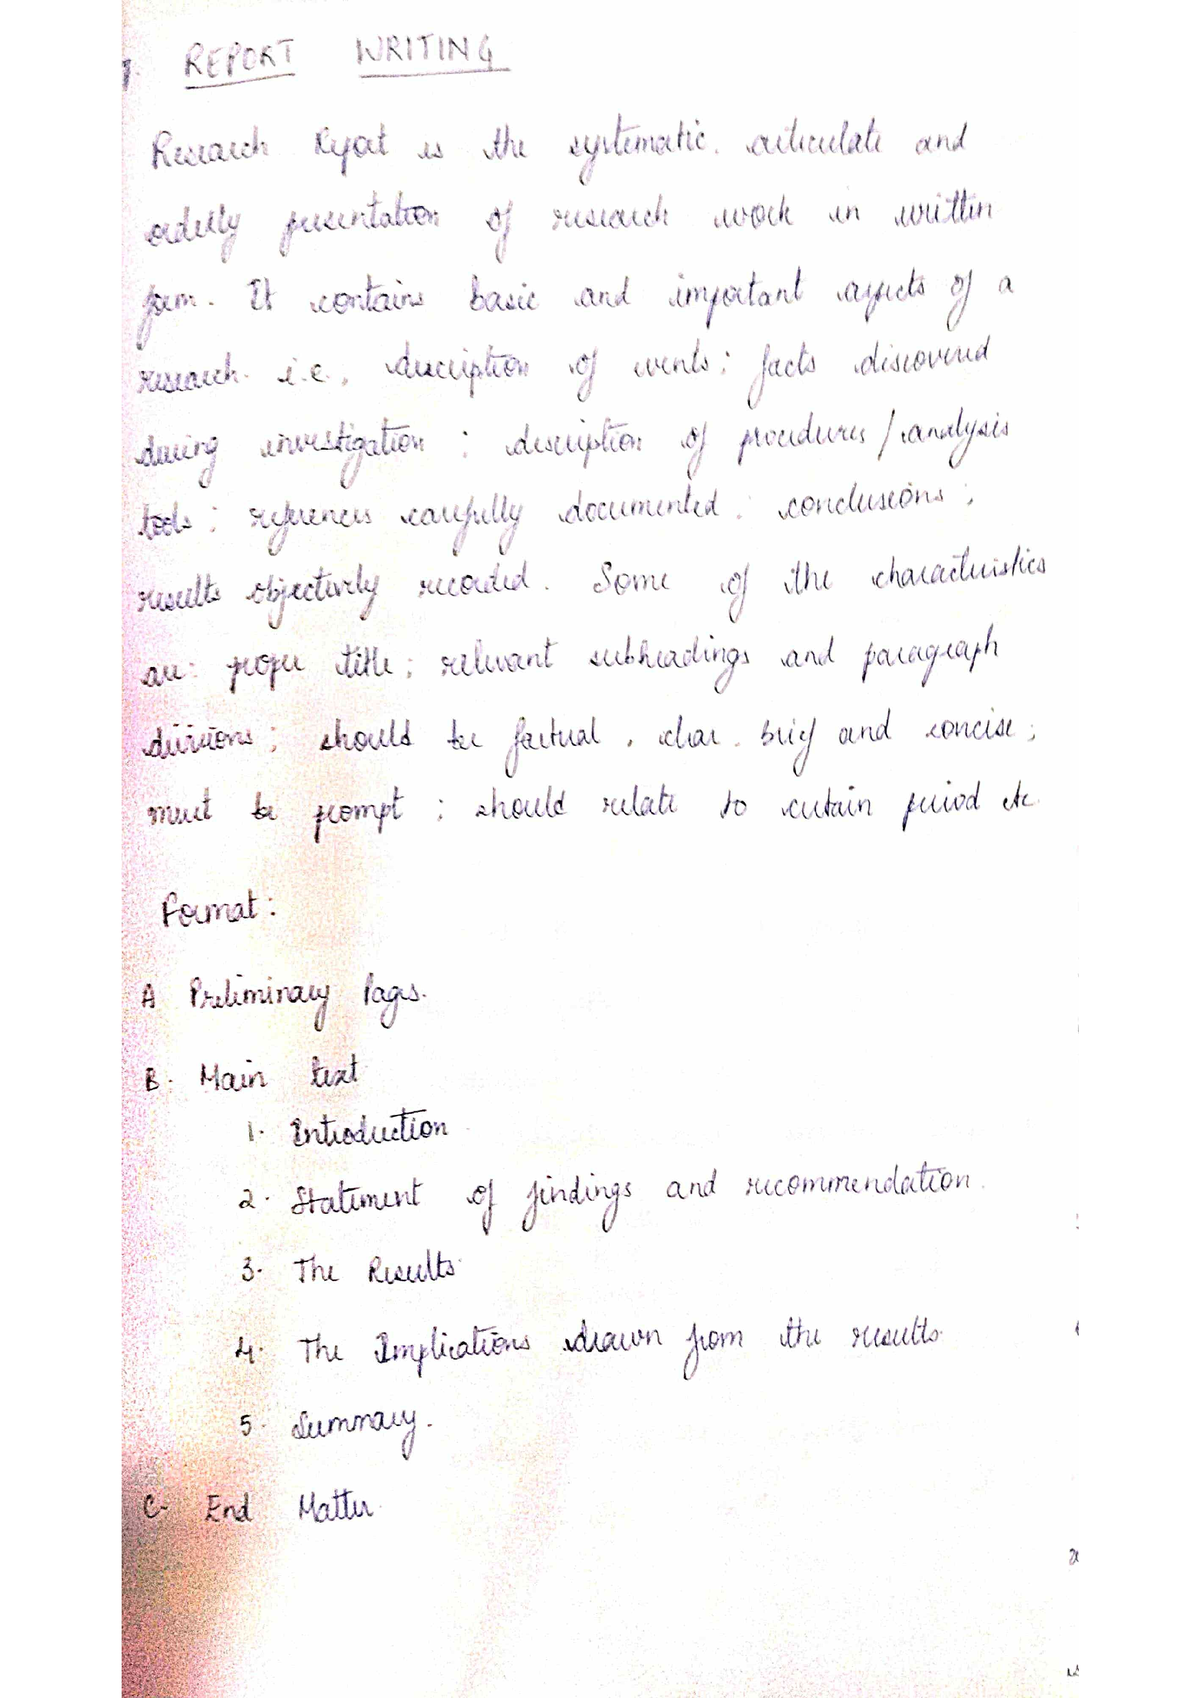 7. REPORT WRITING
Research Report is the systematic, articulate and
orderly presentation of research work in written
form. It contains basic and important aspects of a
research i.e., description of events; facts discovered
during investigation; description of procedures/analysis
tools; references carefully documented; conclusions;
results objectively recorded. Some of the characteristics
are: proper title; relevant subheadings and paragraph
divisions; should be factual, clear, brief and concise;
must be prompt; should relate to certain period etc.
Format:
A Preliminary Pages.
B. Main text
1. Introduction
2. Statement of findings and recommendation.
3. The Results.
4. The Implications drawn from the results.
5. Summary.
C. End Matter.